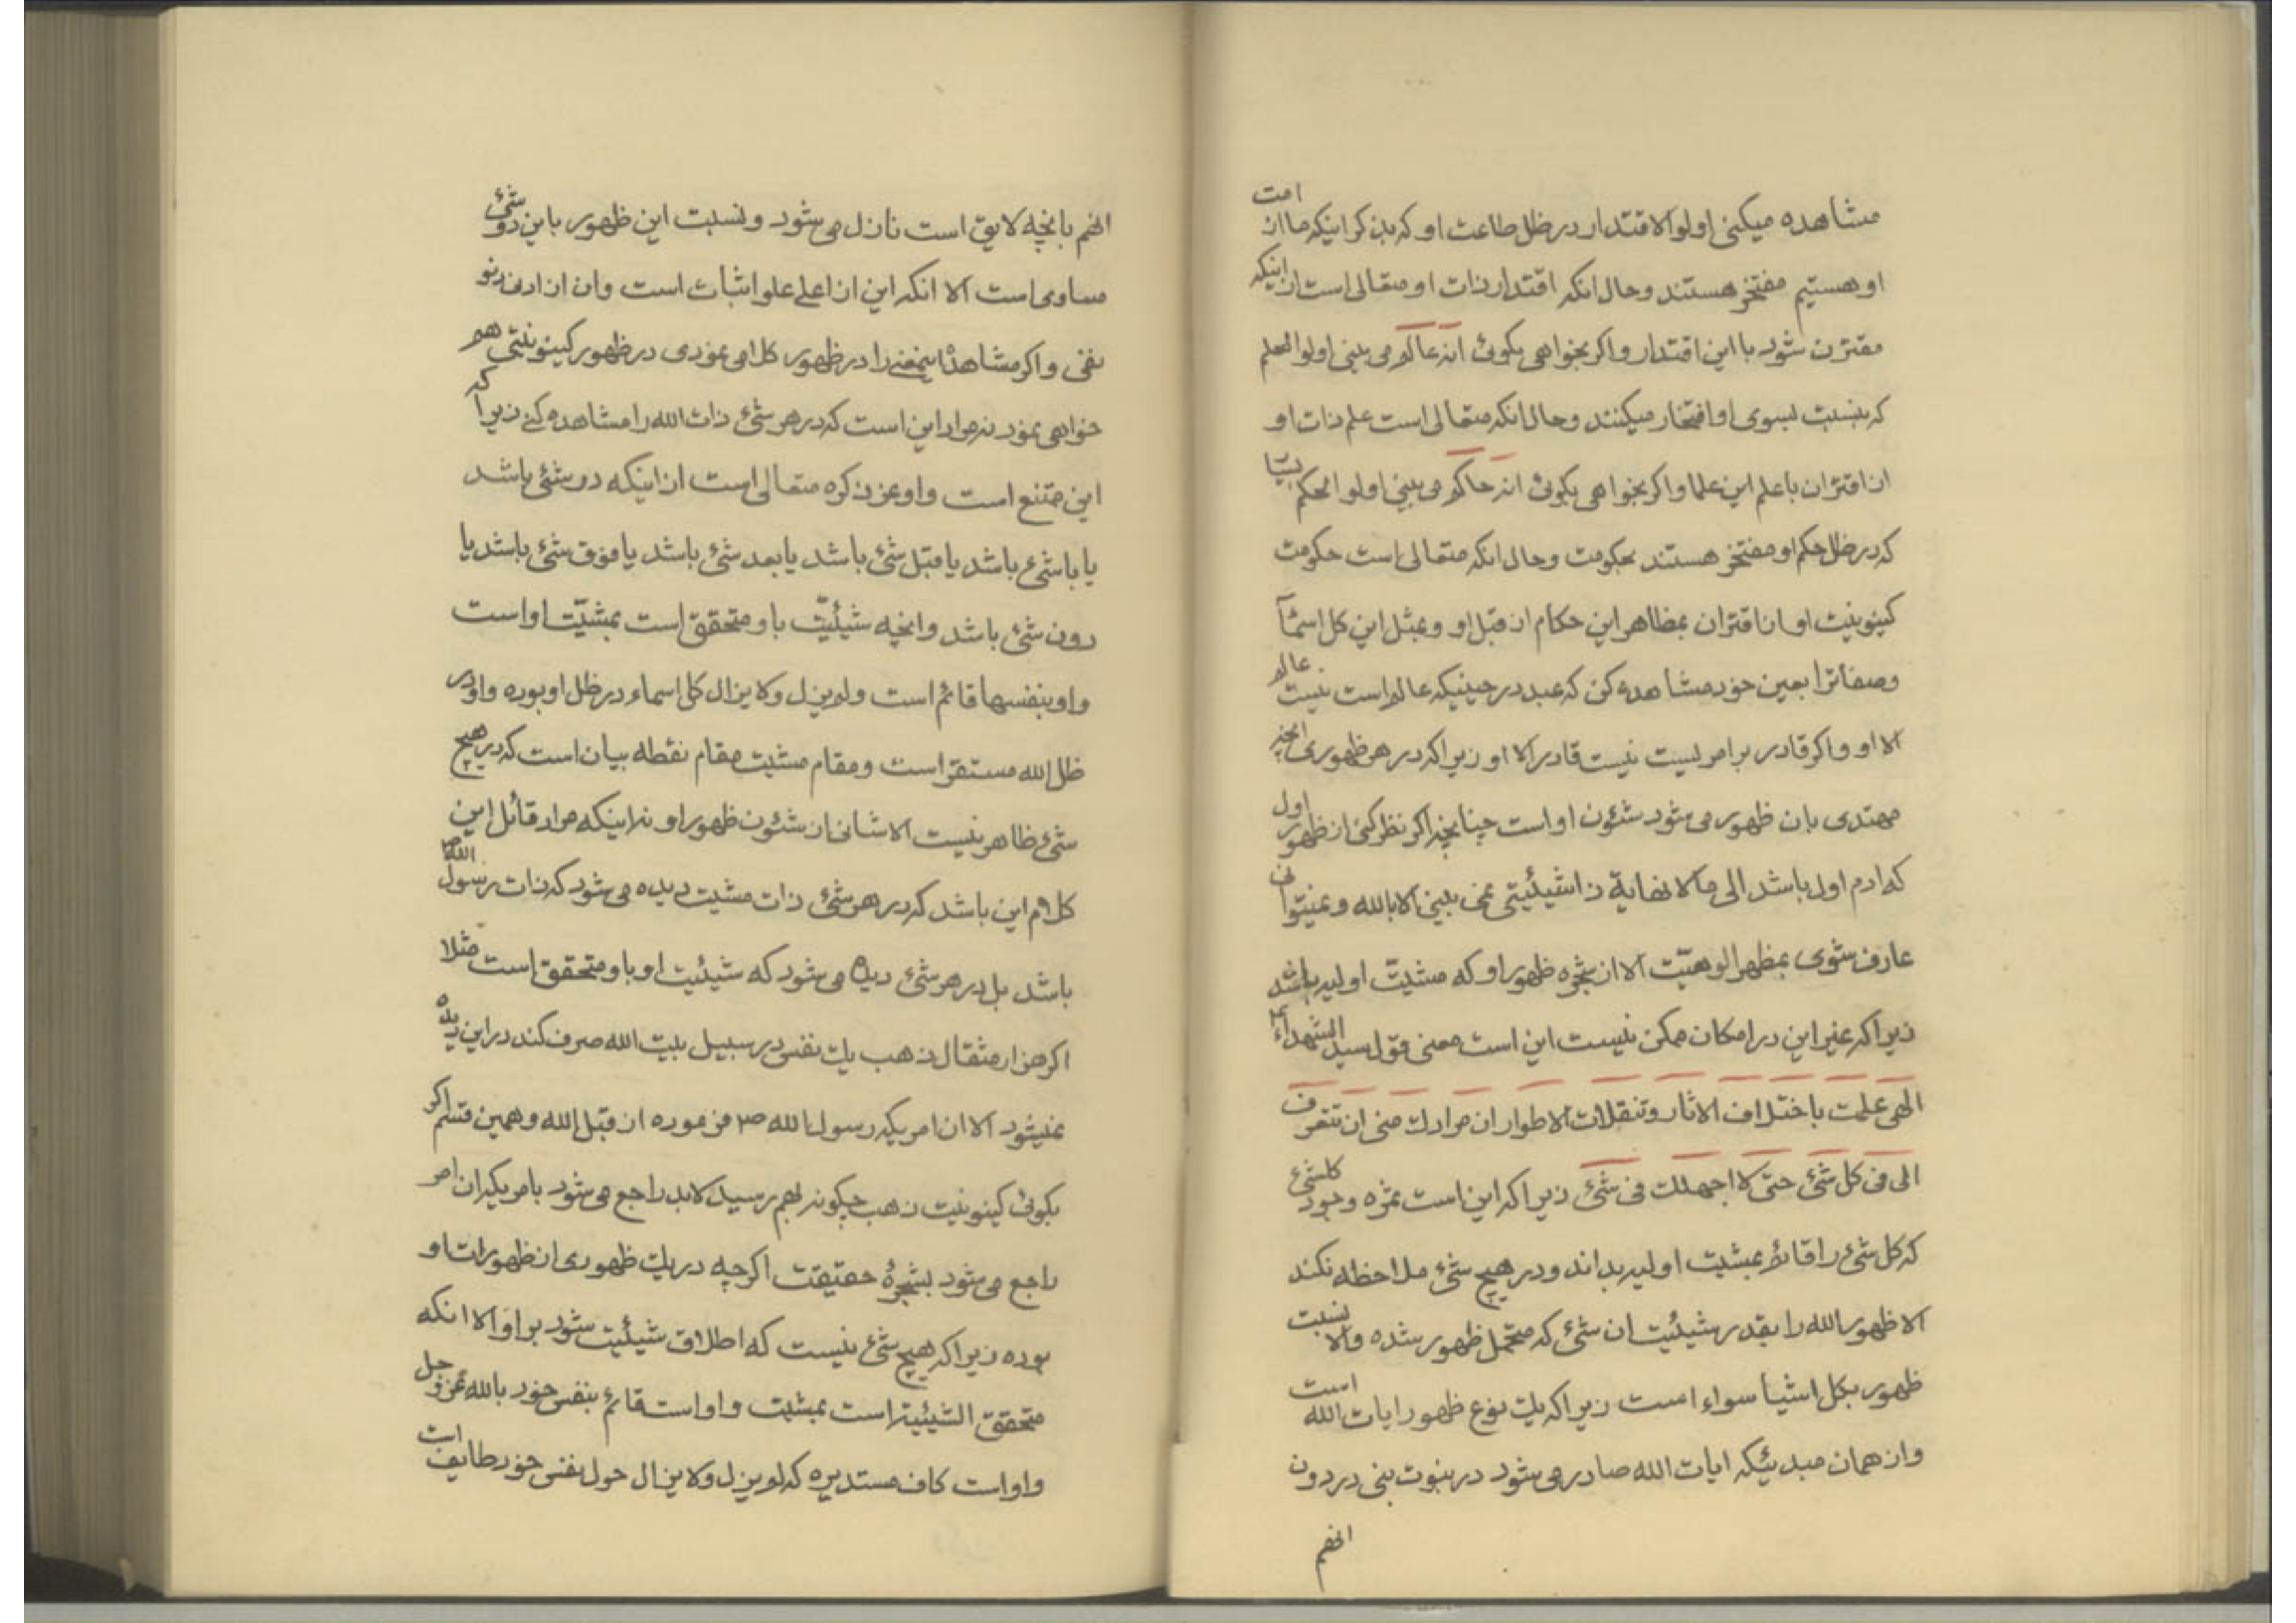 مشاهده میکنی اولوالاقتدار در ظل طاعت او که بذکر اینکه ما از امت
او هستیم مفتخر هستند و حال انکه اقتدار ذات او متعالی است از اینکه
مقترن شود با این اقتدار و اگر بخواهی بگوئی انه عالم می بینی اولوالعلم
که بنسبت بسوی او افتخار میکنند و حال انکه متعالی است علم ذات او
از اقتران با علم این علما و اگر بخواهی بگوئی انه حاکم می بینی اولو الحکم
که در ظل حکم او مفتخر هستند بحکومت و حال انکه متعالی است حکومت
کینونیت او از اقتران بمظاهر این حکام از قبل او و بمثل این کل اسمآ
و صفاترا بعین خود مشاهده کن که عبد در حینیکه عالم است نیست عالم
الا او و اگر قادر بر امریست نیست قادر الا او زیرا که در هر ظهوری انچه
مهتدی بان ظهور می شود شئون او است چنانچه اگر نظر کنی از ظهور اول
که ادم اول باشد الی ما لا نهایة ذا شیئیتی نمی بینی الا بالله و نمیتوانی
عارف شوی بمظهر الوهیّت الا از شجره ظهور او که مشیّت اولیه باشد
زیرا که غیر این در امکان ممکن نیست این است معنی قول سید الشهداء
الهی علمت باختلاف الاثار و تنقلات الاطوار ان مرادك منی ان تتعرف
الی فی کل شئ حتی لا اجهلك فی شئ زیرا که این است ثمره وجود کلشئ
که کل شئ را قائم بمشیت اولیه بداند و در هیچ شئ ملاحظه نکند
الا ظهور الله را بقدر شیئیت ان شئ که متحمل ظهور شده و الا نسبت
ظهور بکل اشیا سواء است زیرا که یك نوع ظهور ایات الله است
و از همان مبدئیکه ایات الله صادر می شود در نبوت نبی در دون
انهم
انهم بانچه لایق است نازل می شود و نسبت این ظهور باین دو شئ
مساوی است الا انکه این از اعلی علو اثبات است و ان از ادنی دنو
نفی و اگر مشاهدۀ اینمعنی را در ظهور کلامی نمودی در ظهور کینونیتی هم
خواهی نمود نه مراد این است که در هر شئ ذات الله را مشاهده کنی زیرا که
این ممتنع است و او عز ذکره متعالی است از اینکه در شئ باشد
یا با شئ باشد یا قبل شئ باشد یا بعد شئ باشد یا فوق شئ باشد یا
دون شئ باشد و انچه شیئیّت باو متحقق است بمشیّت او است
و او بنفسها قائم است و لم یزل و لا یزال کل اسماء در ظل او بوده و او در
ظل الله مستقر است و مقام مشیت مقام نقطه بیان است که در هیچ
شئ ظاهر نیست الا شانی از شئون ظهور او نه اینکه مراد قائل این
کلام این باشد که در هر شئ ذات مشیت دیده می شود که ذات رسول الله ص
باشد بل در هر شئ دیده می شود که شیئیت او باو متحقق است مثلا
اگر هزار مثقال ذهب یك نفس در سبیل بیت الله صرف کند در این دیده
نمیشود الا ان امریکه رسول الله ص فرموده از قبل الله و همین قسم اگر
بگوئی کینونیت ذهب چگونه بهم رسید لابد راجع می شود بامریکه ان امر
راجع می شود بشجرۀ حقیقت اگرچه در یك ظهوری از ظهورات او
بوده زیرا که هیچ شئ نیست که اطلاق شیئیت شود بر او الا انکه
متحقق الشیئیة است بمشیت و او است قائم بنفس خود بالله عز و جل
و او است کاف مستدیره که لم یزل و لا یزال حول نفس خود طایف است